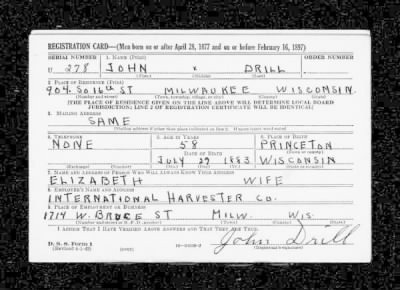 REGISTRATION CARD—(Men born on or after April 28, 1877 and on or before February 16, 1897)
SERIAL NUMBER 1. NAME (Print) ORDER NUMBER
U 278 JOHN x DRILL
(First) (Middle) (Last)
2. PLACE OF RESIDENCE (Print)
904 SO 16th ST MILWAUKEE WISCONSIN
(Number and street) (Town, township, village, or city) (County) (State)
[THE PLACE OF RESIDENCE GIVEN ON THE LINE ABOVE WILL DETERMINE LOCAL BOARD
JURISDICTION; LINE 2 OF REGISTRATION CERTIFICATE WILL BE IDENTICAL]
3. MAILING ADDRESS
SAME
[Mailing address if other than place indicated on line 2. If same insert word same]
4. TELEPHONE 5. AGE IN YEARS 6. PLACE OF BIRTH
NONE 58 PRINCETON
DATE OF BIRTH (Town or county)
JULY 29 1883 WISCONSIN
(Exchange) (Number) (Mo.) (Day) (Yr.) (State or country)
7. NAME AND ADDRESS OF PERSON WHO WILL ALWAYS KNOW YOUR ADDRESS
ELIZABETH WIFE
8. EMPLOYER'S NAME AND ADDRESS
INTERNATIONAL HARVESTER CO.
9. PLACE OF EMPLOYMENT OR BUSINESS
1714 W. BRUCE ST MILW. WIS.
(Number and street or R. F. D. number) (Town) (County) (State)
I AFFIRM THAT I HAVE VERIFIED ABOVE ANSWERS AND THAT THEY ARE TRUE.
D. S. S. Form 1 John Drill
(Revised 4-1-42) (Registrant's signature)